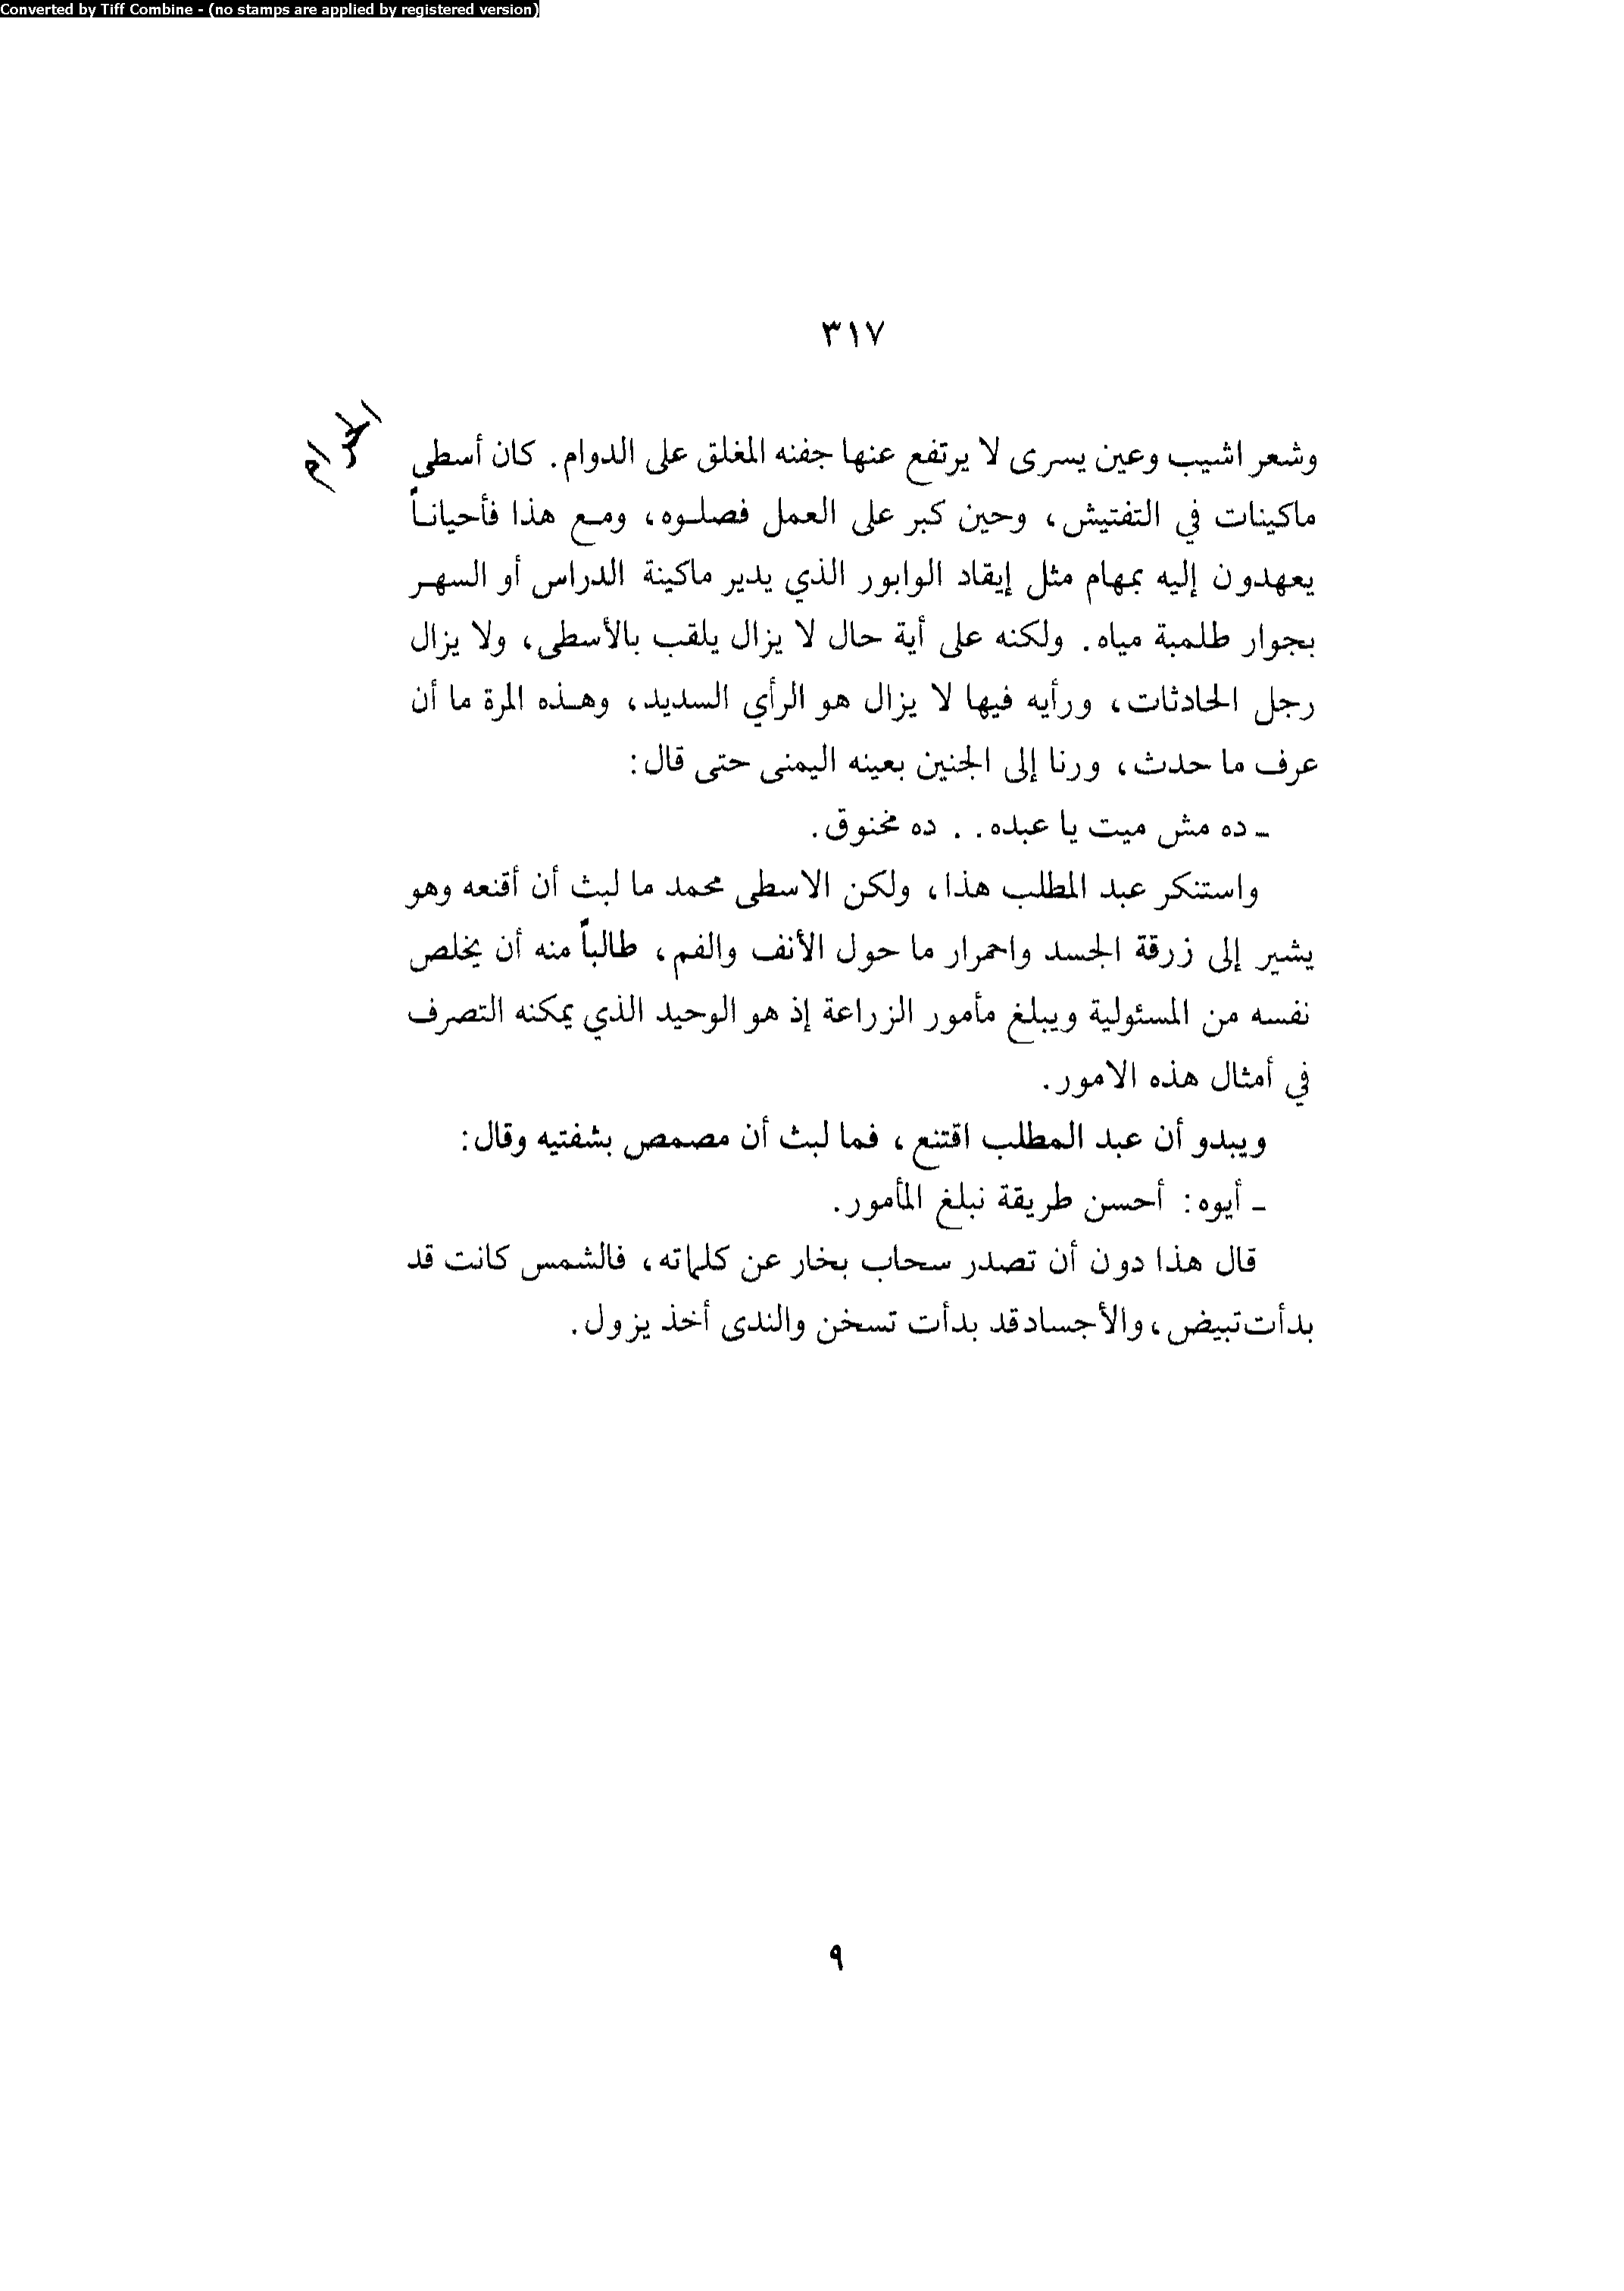 Converted by Tiff Combine - (no stamps are applied by registered version)
٣١٧
الحرام
وشعر اشيب وعين يسرى لا يرتفع عنها جفنه المغلق على الدوام. كان أسطى
ماكينات في التفتيش، وحين كبر على العمل فصلوه، ومع هذا فأحياناً
يعهدون إليه بمهام مثل إيقاد الوابور الذي يدير ماكينة الدراس أو السهر
بجوار طلمبة مياه. ولكنه على أية حال لا يزال يلقب بالأسطى، ولا يزال
رجل الحادثات، ورأيه فيها لا يزال هو الرأي السديد، وهذه المرة ما أن
عرف ما حدث، ورنا إلى الجنين بعينه اليمنى حتى قال:
ـ ده مش ميت يا عبده. . ده مخنوق.
واستنكر عبد المطلب هذا، ولكن الاسطى محمد ما لبث أن أقنعه وهو
يشير إلى زرقة الجسد واحمرار ما حول الأنف والفم، طالباً منه أن يخلص
نفسه من المسئولية ويبلغ مأمور الزراعة إذ هو الوحيد الذي يمكنه التصرف
في أمثال هذه الامور.
ويبدو أن عبد المطلب اقتنع، فما لبث أن مصمص بشفتيه وقال:
ـ أيوه: أحسن طريقة نبلغ المأمور.
قال هذا دون أن تصدر سحاب بخار عن كلماته، فالشمس كانت قد
بدأت تبيض، والأجساد قد بدأت تسخن والندى أخذ يزول.
٩